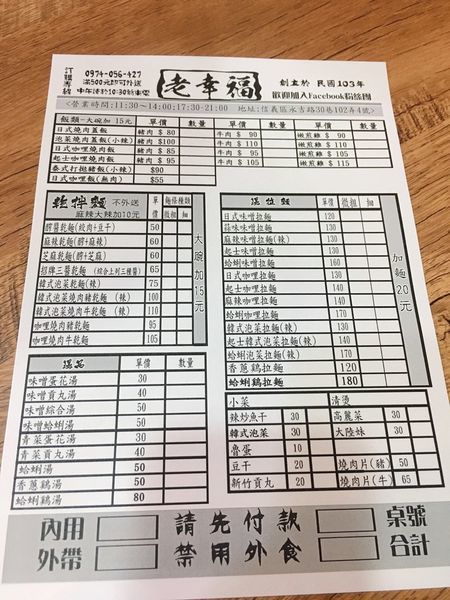 訂餐專線
0974-056-427
滿500元即可外送
中午請於10:30前來電
老幸福
創立於 民國103年
歡迎加入Facebook粉絲團
<營業時間:11:30~14:00:17:30-21:00 地址:信義區永吉路30巷102弄4號>
飯類-大碗加 15元 單價 數量 單價 數量 單價 數量
日式燒肉蓋飯 豬肉 $ 80 牛肉 $ 90 嫩煎雞 $ 90
泡菜燒肉蓋飯(小辣) 豬肉 $100 牛肉 $ 110 嫩煎雞 $ 110
日式咖哩燒肉飯 豬肉 $ 85 牛肉 $ 95 嫩煎雞 $ 95
起士咖哩燒肉飯 豬肉 $ 95 牛肉 $ 105 嫩煎雞 $ 105
泰式打拋豬飯(小辣) $90
日式咖哩飯(無肉) $55
乾拌麵 不外送
麻辣大辣加10元
單價 麵條種類 微粗 細
醡醬乾麵(絞肉+豆干) 50
麻辣乾麵(醡+麻辣) 60
芝麻乾麵(醡+芝麻) 60
招牌三醬乾麵 (綜合上列三種醬) 65
韓式泡菜乾麵(辣) 75
韓式泡菜燒肉豬乾麵 (辣) 100
韓式泡菜燒肉牛乾麵 (辣) 110
咖哩燒肉豬乾麵 95
咖哩燒肉牛乾麵 105
大碗加15元
湯拉麵 單價 微粗 細
日式味噌拉麵 120
蒜味味噌拉麵 130
麻辣味噌拉麵(辣) 130
起士味噌拉麵 140
蛤蜊味噌拉麵 160
日式咖哩拉麵 130
起士咖哩拉麵 140
麻辣咖哩拉麵 140
蛤蜊咖哩拉麵 170
韓式泡菜拉麵(辣) 130
起士泡菜拉麵(辣) 140
蛤蜊泡菜拉麵(辣) 170
香菇鷄拉麵 120
蛤蜊鷄拉麵 180
加麵20元
湯品 單價 數量
味噌蛋花湯 30
味噌貢丸湯 40
味噌綜合湯 50
味噌蛤蜊湯 50
青菜蛋花湯 30
青菜貢丸湯 40
蛤蜊湯 50
香菇鷄湯 50
蛤蜊鷄湯 80
小菜 清燙
辣炒魚干 30 高麗菜 30
韓式泡菜 30 大陸妹 30
魯蛋 10
豆干 20 燒肉片(豬) 50
新竹貢丸 20 燒肉片(牛) 65
內用 請先付款 桌號
外帶 禁用外食 合計